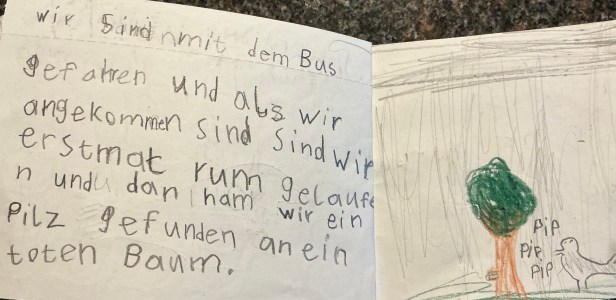 wir sind mit dem Bus
gefahren und als wir
angekommen sind sind wir
erstmat rum gelaufe
n und dan ham wir ein
Pilz gefunden an ein
toten Baum.
PiP
PiP
PiP